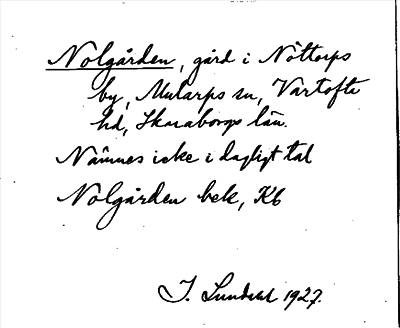 Nolgården, gård i Nöttorps
by, Mularps sn, Vartofta
hd, Skaraborgs län.
Nämnes icke i dagligt tal
Nolgården bek, Kb
I. Lundahl 1927.